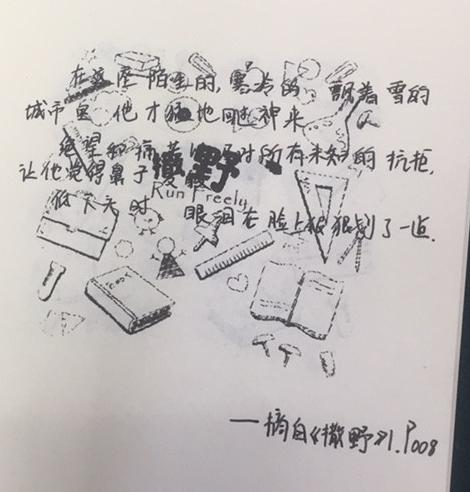 在这座陌生的,寒冷的 飘着雪的
城市里 他才猛地回过神来
绝望和痛苦以及对所有未知的抗拒,
让他觉得鼻子发酸
撒野
Run Freely
低下头时 眼泪在脸上狠狠划了一道.
——摘自《撒野》1.P008